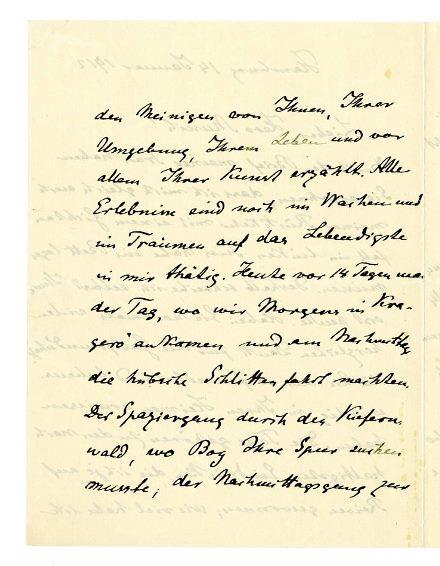 den Meinigen von Ihnen, Ihrer
Umgebung, Ihrem Leben und vor
allem Ihrer Kunst erzählt. Alle
Erlebnisse sind noch im Wachen und
im Träumen auf das Lebendigste
in mir thätig. Heute vor 14 Tagen war
der Tag, wo wir Morgens in Kra-
gerö ankamen und am Nachmittag
die hübsche Schlittenfahrt machten.
Der Spaziergang durch den Kiefern
wald, wo Boy Ihre Spur suchen
musste, der Nachmittagsgang zur